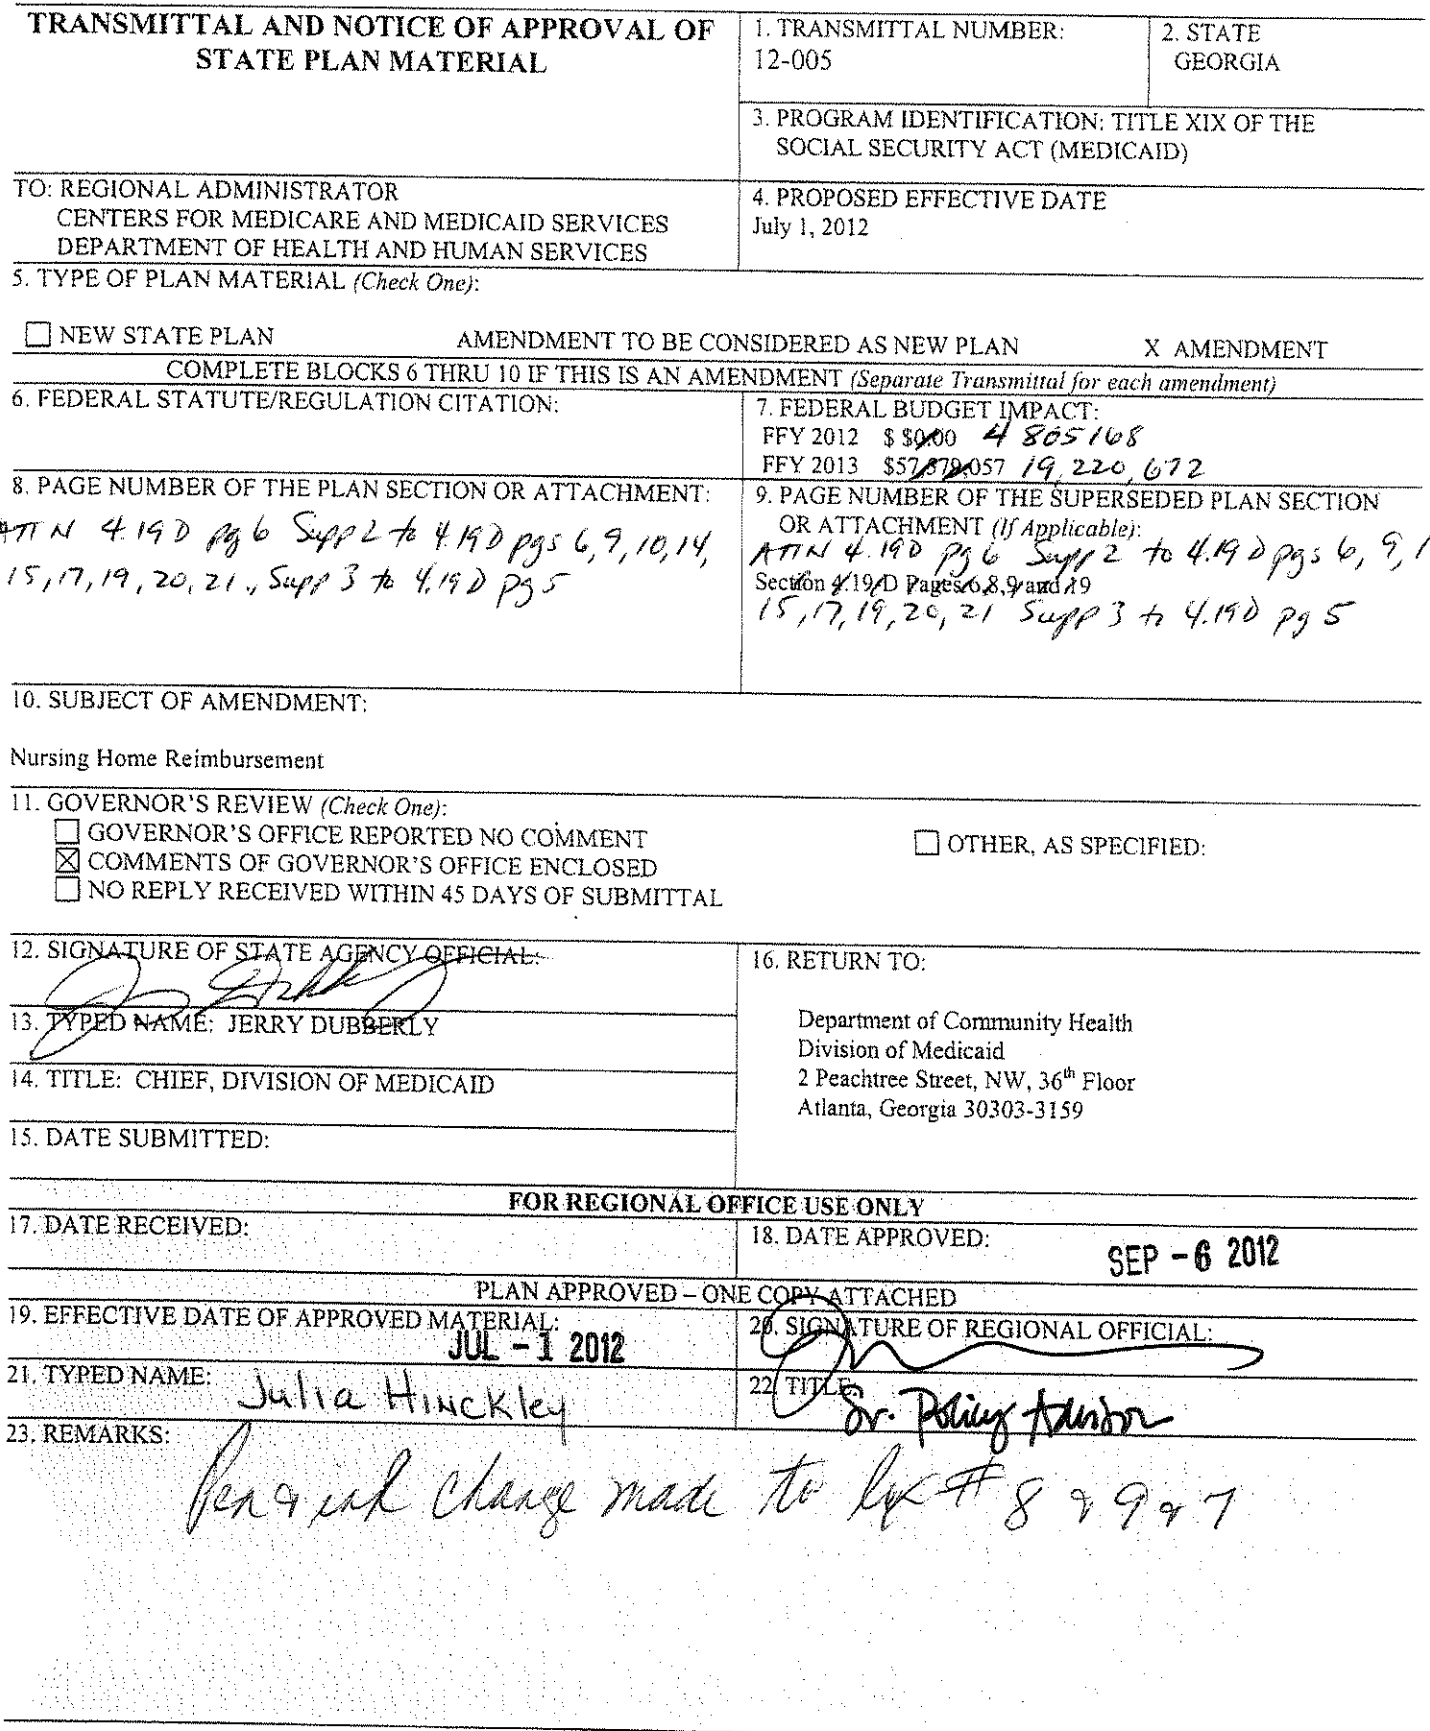 TRANSMITTAL AND NOTICE OF APPROVAL OF
STATE PLAN MATERIAL
1. TRANSMITTAL NUMBER:
12-005
2. STATE
GEORGIA
3. PROGRAM IDENTIFICATION: TITLE XIX OF THE
SOCIAL SECURITY ACT (MEDICAID)
TO: REGIONAL ADMINISTRATOR
CENTERS FOR MEDICARE AND MEDICAID SERVICES
DEPARTMENT OF HEALTH AND HUMAN SERVICES
4. PROPOSED EFFECTIVE DATE
July 1, 2012
5. TYPE OF PLAN MATERIAL (Check One):
☐ NEW STATE PLAN AMENDMENT TO BE CONSIDERED AS NEW PLAN X AMENDMENT
COMPLETE BLOCKS 6 THRU 10 IF THIS IS AN AMENDMENT (Separate Transmittal for each amendment)
6. FEDERAL STATUTE/REGULATION CITATION:
7. FEDERAL BUDGET IMPACT:
FFY 2012 $ $0.00 4 805168
FFY 2013 $57,879,057 19,220,672
8. PAGE NUMBER OF THE PLAN SECTION OR ATTACHMENT:
ATTN 4.19D pg 6 Supp 2 to 4.19D pgs 6, 9, 10, 14,
15, 17, 19, 20, 21., Supp 3 to 4.19D pg 5
9. PAGE NUMBER OF THE SUPERSEDED PLAN SECTION
OR ATTACHMENT (If Applicable):
ATTN 4.19D pg 6 Supp 2 to 4.19D pgs 6, 9, 1
Section 4.19/D Pages 6,8,9 and 19
15, 17, 19, 20, 21 Supp 3 to 4.19D pg 5
10. SUBJECT OF AMENDMENT:
Nursing Home Reimbursement
11. GOVERNOR'S REVIEW (Check One):
☐ GOVERNOR'S OFFICE REPORTED NO COMMENT
☒ COMMENTS OF GOVERNOR'S OFFICE ENCLOSED
☐ NO REPLY RECEIVED WITHIN 45 DAYS OF SUBMITTAL
☐ OTHER, AS SPECIFIED:
12. SIGNATURE OF STATE AGENCY OFFICIAL:
13. TYPED NAME: JERRY DUBBERLY
14. TITLE: CHIEF, DIVISION OF MEDICAID
15. DATE SUBMITTED:
16. RETURN TO:
Department of Community Health
Division of Medicaid
2 Peachtree Street, NW, 36th Floor
Atlanta, Georgia 30303-3159
FOR REGIONAL OFFICE USE ONLY
17. DATE RECEIVED:
18. DATE APPROVED:
SEP - 6 2012
PLAN APPROVED – ONE COPY ATTACHED
19. EFFECTIVE DATE OF APPROVED MATERIAL:
JUL - 1 2012
20. SIGNATURE OF REGIONAL OFFICIAL:
21. TYPED NAME: Julia Hinckley
22. TITLE:
Sr. Policy Advisor
23. REMARKS:
Pen & ink change made to # 8 & 9 & 7